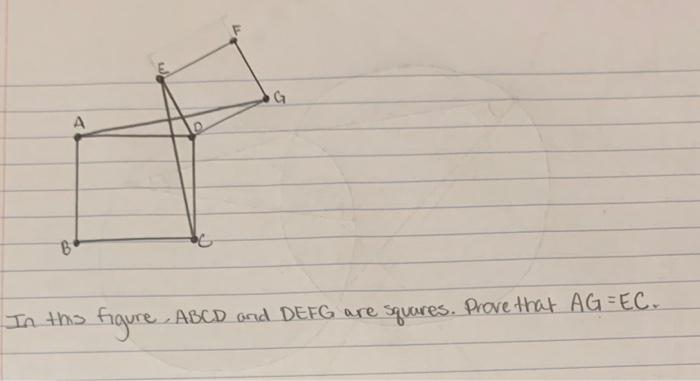 F
E
G
A
D
B
C
In this figure, ABCD and DEFG are squares. Prove that AG=EC.